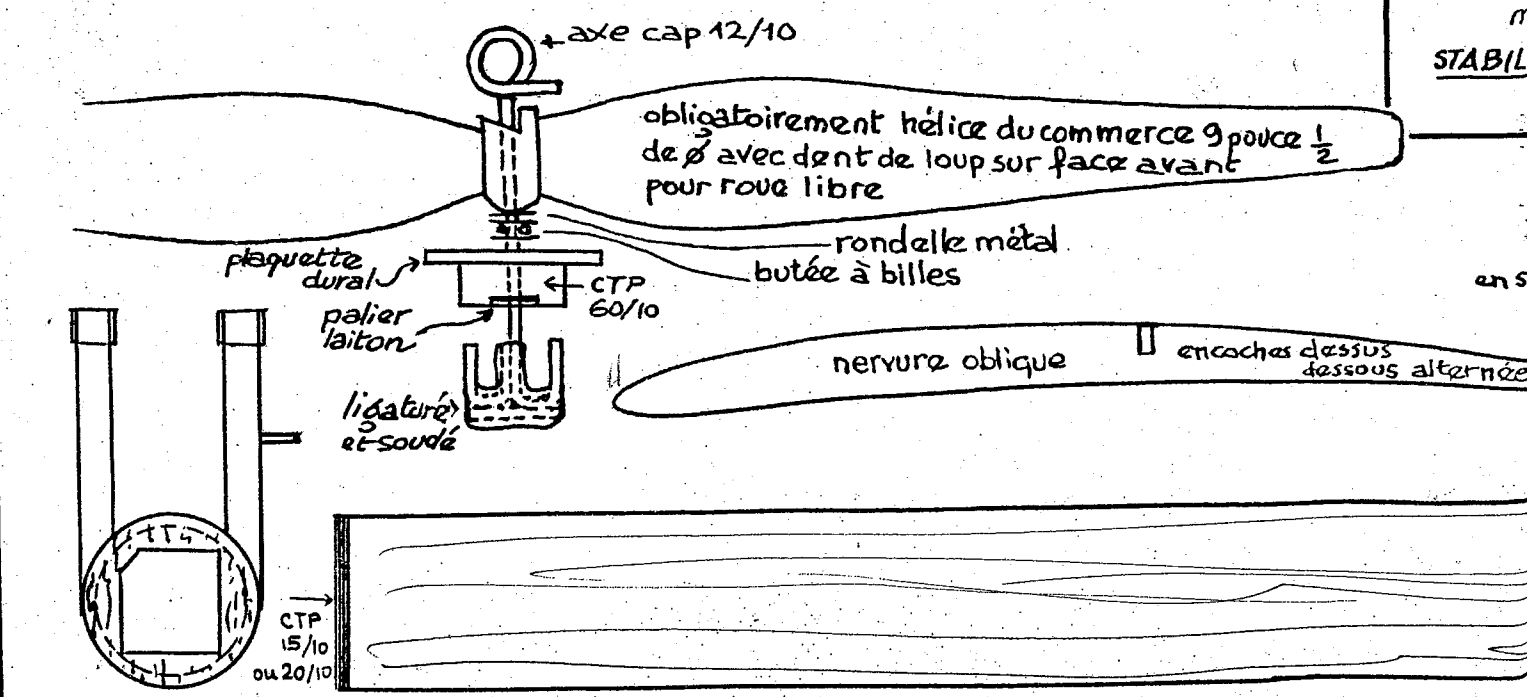 axe cap 12/10
STABIL
obligatoirement hélice du commerce 9 pouce 1/2
de ø avec dent de loup sur face avant
pour roue libre
rondelle métal
butée à billes
plaquette
dural
CTP
60/10
palier
laiton
en s
nervure oblique
encoches dessus
dessous alternée
ligaturé
et soudé
CTP
15/10
ou 20/10